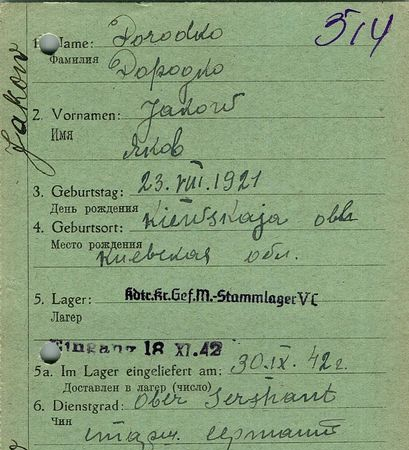 514
1. Name: Porodko
Фамилия Породко
Jakow
2. Vornamen: Jakow
Имя Яков
3. Geburtstag: 23.VIII.1921
День рождения
4. Geburtsort: Kiewskaja obl
Место рождения
Киевская обл.
5. Lager: Kdtr. Kr. Gef. M.-Stammlager V C
Лагер
Eingang 18 XI. 42
5a. Im Lager eingeliefert am: 30.IX.42г.
Доставлен в лагер (число)
6. Dienstgrad: Ober Serzhant
Чин
старш. сержант